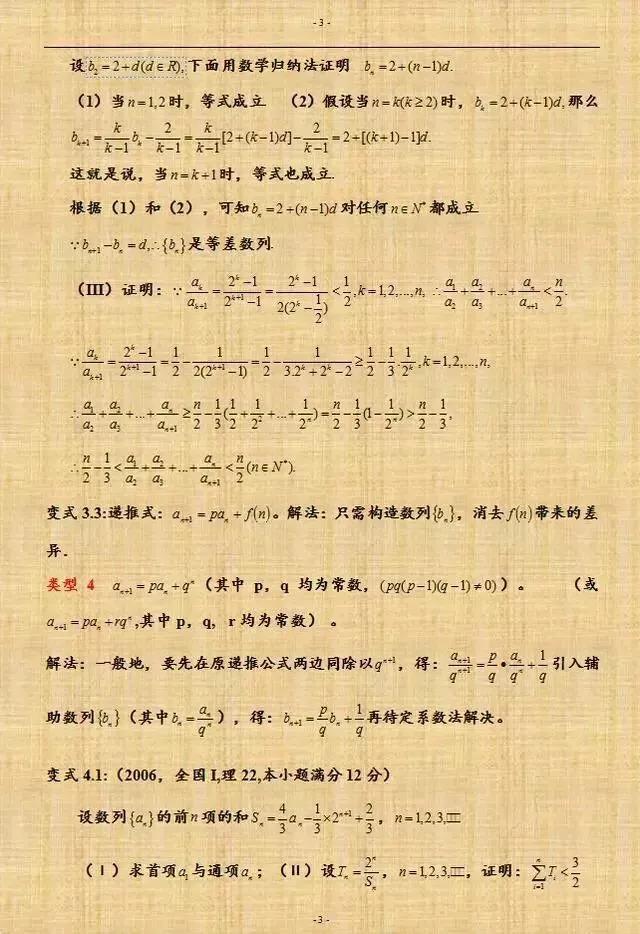 - 3 -
设 b₂ = 2 + d(d ∈ R), 下面用数学归纳法证明 bₙ = 2 + (n−1)d.
（1）当 n = 1,2 时，等式成立 （2）假设当 n = k(k ≥ 2) 时，bₖ = 2 + (k−1)d, 那么
bₖ₊₁ = k/(k−1) bₖ − 2/(k−1) = k/(k−1) [2 + (k−1)d] − 2/(k−1) = 2 + [(k+1)−1]d.
这就是说，当 n = k + 1 时，等式也成立.
根据（1）和（2），可知 bₙ = 2 + (n−1)d 对任何 n ∈ N* 都成立
∵ bₙ₊₁ − bₙ = d, ∴ {bₙ} 是等差数列.
（III）证明：∵ aₖ/aₖ₊₁ = (2ᵏ−1)/(2ᵏ⁺¹−1) = (2ᵏ−1)/(2(2ᵏ−1/2)) < 1/2, k = 1,2,...,n, ∴ a₁/a₂ + a₂/a₃ + ... + aₙ/aₙ₊₁ < n/2.
∵ aₖ/aₖ₊₁ = (2ᵏ−1)/(2ᵏ⁺¹−1) = 1/2 − 1/(2(2ᵏ⁺¹−1)) = 1/2 − 1/(3.2ᵏ+2ᵏ−2) ≥ 1/2 − 1/3 . 1/2ᵏ, k = 1,2,...,n,
∴ a₁/a₂ + a₂/a₃ + ... + aₙ/aₙ₊₁ ≥ n/2 − 1/3(1/2 + 1/2² + ... + 1/2ⁿ) = n/2 − 1/3(1 − 1/2ⁿ) > n/2 − 1/3,
∴ n/2 − 1/3 < a₁/a₂ + a₂/a₃ + ... + aₙ/aₙ₊₁ < n/2 (n ∈ N*).
变式 3.3:递推式：aₙ₊₁ = paₙ + f(n)。解法：只需构造数列{bₙ}，消去 f(n) 带来的差
异.
类型 4 aₙ₊₁ = paₙ + qⁿ（其中 p，q 均为常数，(pq(p−1)(q−1) ≠ 0)）。 （或
aₙ₊₁ = paₙ + rqⁿ ,其中 p，q, r 均为常数）。
解法：一般地，要先在原递推公式两边同除以 qⁿ⁺¹，得：aₙ₊₁/qⁿ⁺¹ = p/q • aₙ/qⁿ + 1/q 引入辅
助数列{bₙ}（其中 bₙ = aₙ/qⁿ），得：bₙ₊₁ = p/q bₙ + 1/q 再待定系数法解决。
变式 4.1:（2006，全国 I,理 22,本小题满分 12 分）
设数列{aₙ}的前 n 项的和 Sₙ = 4/3 aₙ − 1/3 × 2ⁿ⁺¹ + 2/3，n = 1,2,3,□□
（I）求首项 a₁ 与通项 aₙ；（II）设 Tₙ = 2ⁿ/Sₙ，n = 1,2,3,□□，证明：∑ᵢ₌₁ⁿ Tᵢ < 3/2
- 3 -